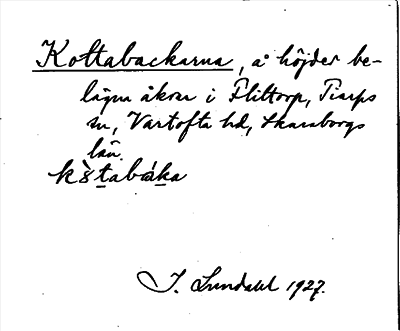 Kottabackarna, å höjder be-
lägna åkrar i Flittorp, Tiarps
sn, Vartofta hd, Skaraborgs
län.
I. Lundahl 1927.